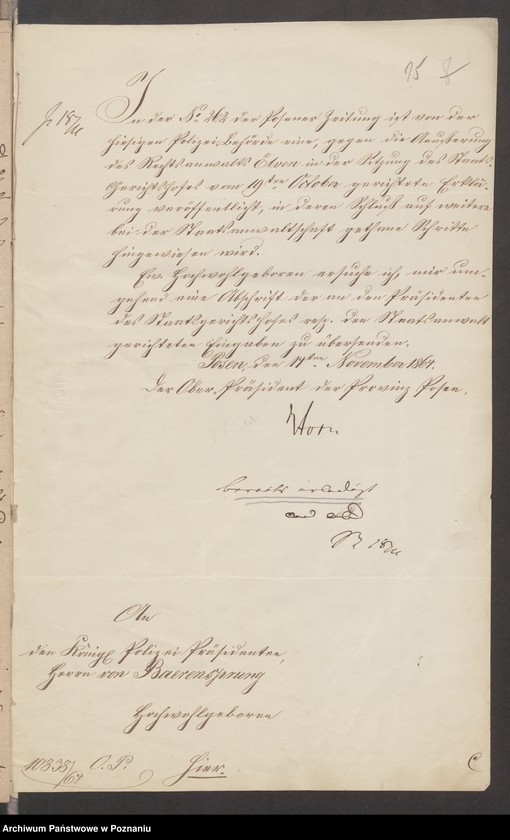 75
In der No 262 der Posener Zeitung ist von der
hiesigen Polizei-Behörde eine, gegen die Aeußerung
des Rechtsanwalts Elven in der Sitzung des Staats-
Gerichtshofes vom 19ten October gerichtete Erklä-
rung veröffentlicht, in deren Schluß auf weitere
bei der Staatsanwaltschaft gethane Schritte
hingewiesen wird.
Ew. Hochwohlgeboren ersuche ich, mir um-
gehend eine Abschrift der an den Präsidenten
des Staatsgerichtshofes resp. den Staatsanwalt
gerichteten Eingaben zu übersenden.
Posen, den 11ten November 1864.
Der Ober-Präsident der Provinz Posen.
Horn
bereits erledigt
An
den Königl. Polizei-Präsidenten,
Herrn von Baerensprung
Hochwohlgeboren
10838/64 O. P.
Hier.
Archiwum Państwowe w Poznaniu